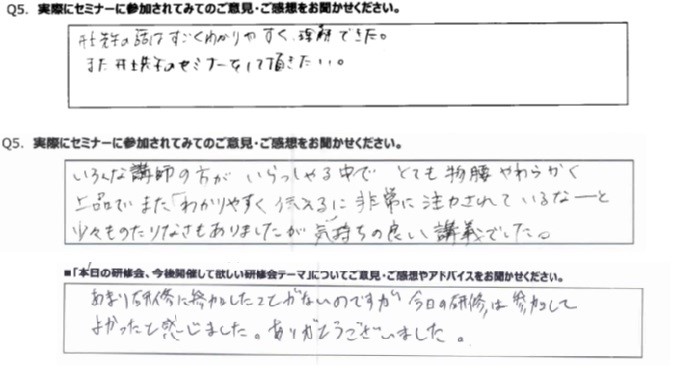 Q5. 実際にセミナーに参加されてみてのご意見・ご感想をお聞かせください。
先生の話はすごくわかりやすく、理解できた。
また 先生のセミナーをして頂きたい。
Q5. 実際にセミナーに参加されてみてのご意見・ご感想をお聞かせください。
いろんな講師の方がいらっしゃる中で とても物腰やわらかく
上品でまた「わかりやすく伝える」に非常に注力されているなーと
少々ものたりなさもありましたが気持ちの良い講義でした。
■「本日の研修会、今後開催して欲しい研修会テーマ」についてご意見・ご感想やアドバイスをお聞かせください。
あまり研修に参加したことがないのですが 今日の研修は参加して
よかったと感じました。ありがとうございました。